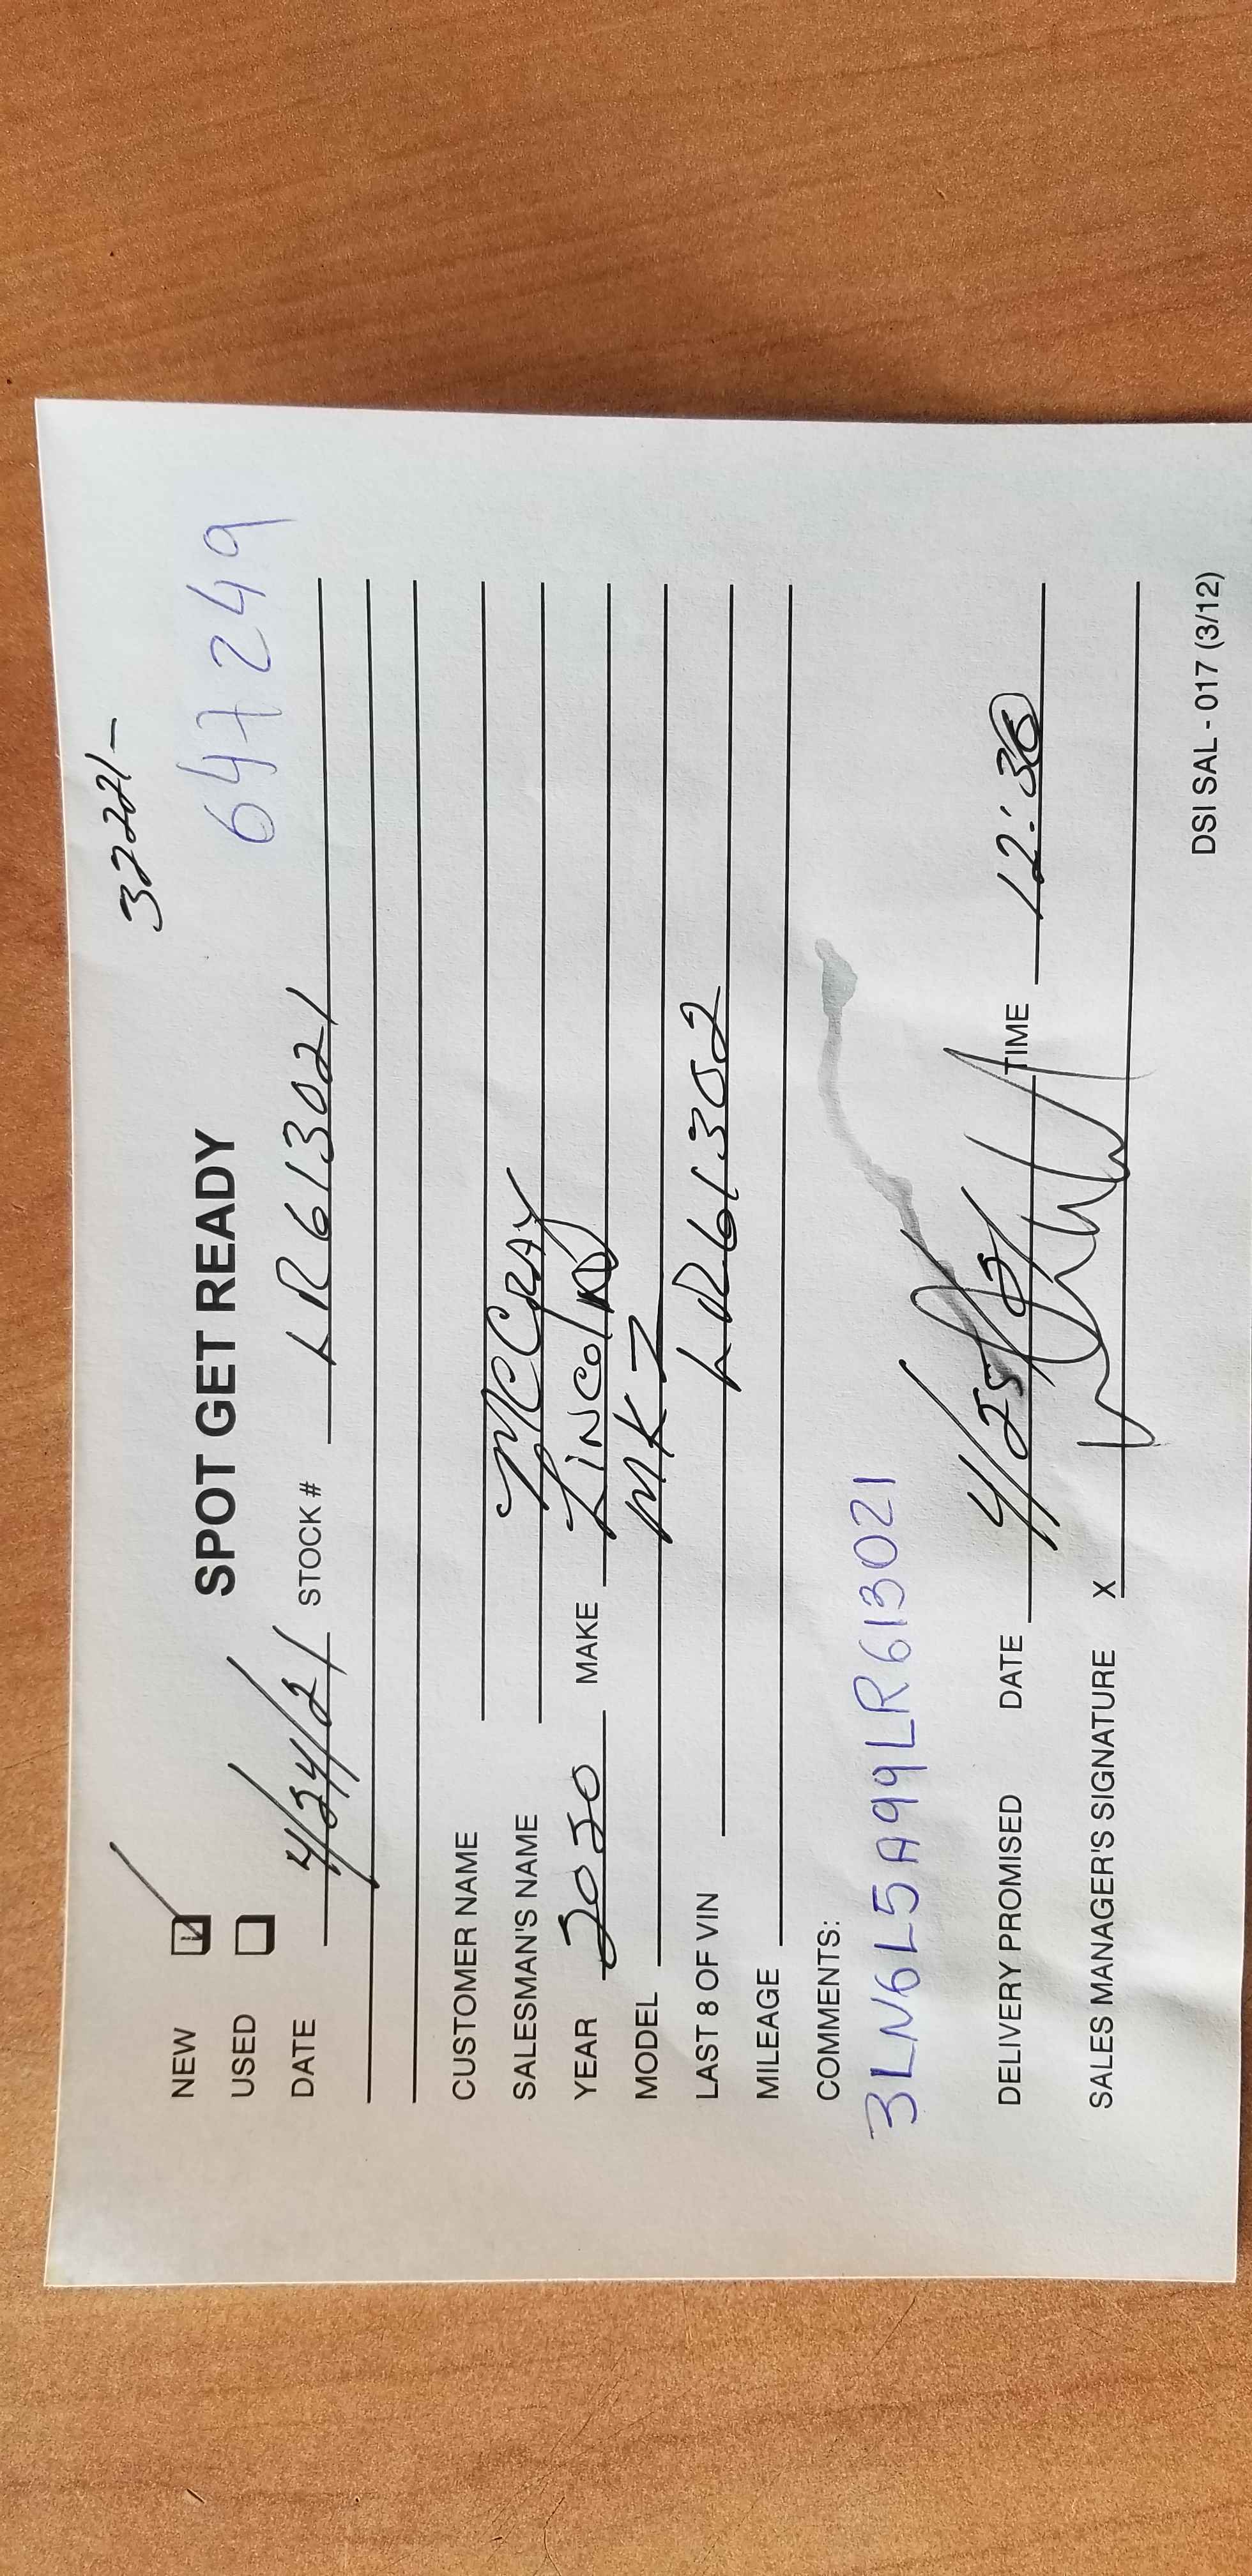 3221-
NEW
647249
USED
SPOT GET READY
DATE 4/24/21 STOCK # LR613021
CUSTOMER NAME
SALESMAN'S NAME MCCRAY
YEAR 2020 MAKE LiNColN
MODEL MKZ
LAST 8 OF VIN LR61302
MILEAGE
COMMENTS:
3LN6L5A99LR613021
DELIVERY PROMISED DATE 4/25/21 TIME 12:30
SALES MANAGER'S SIGNATURE X
DSI SAL - 017 (3/12)